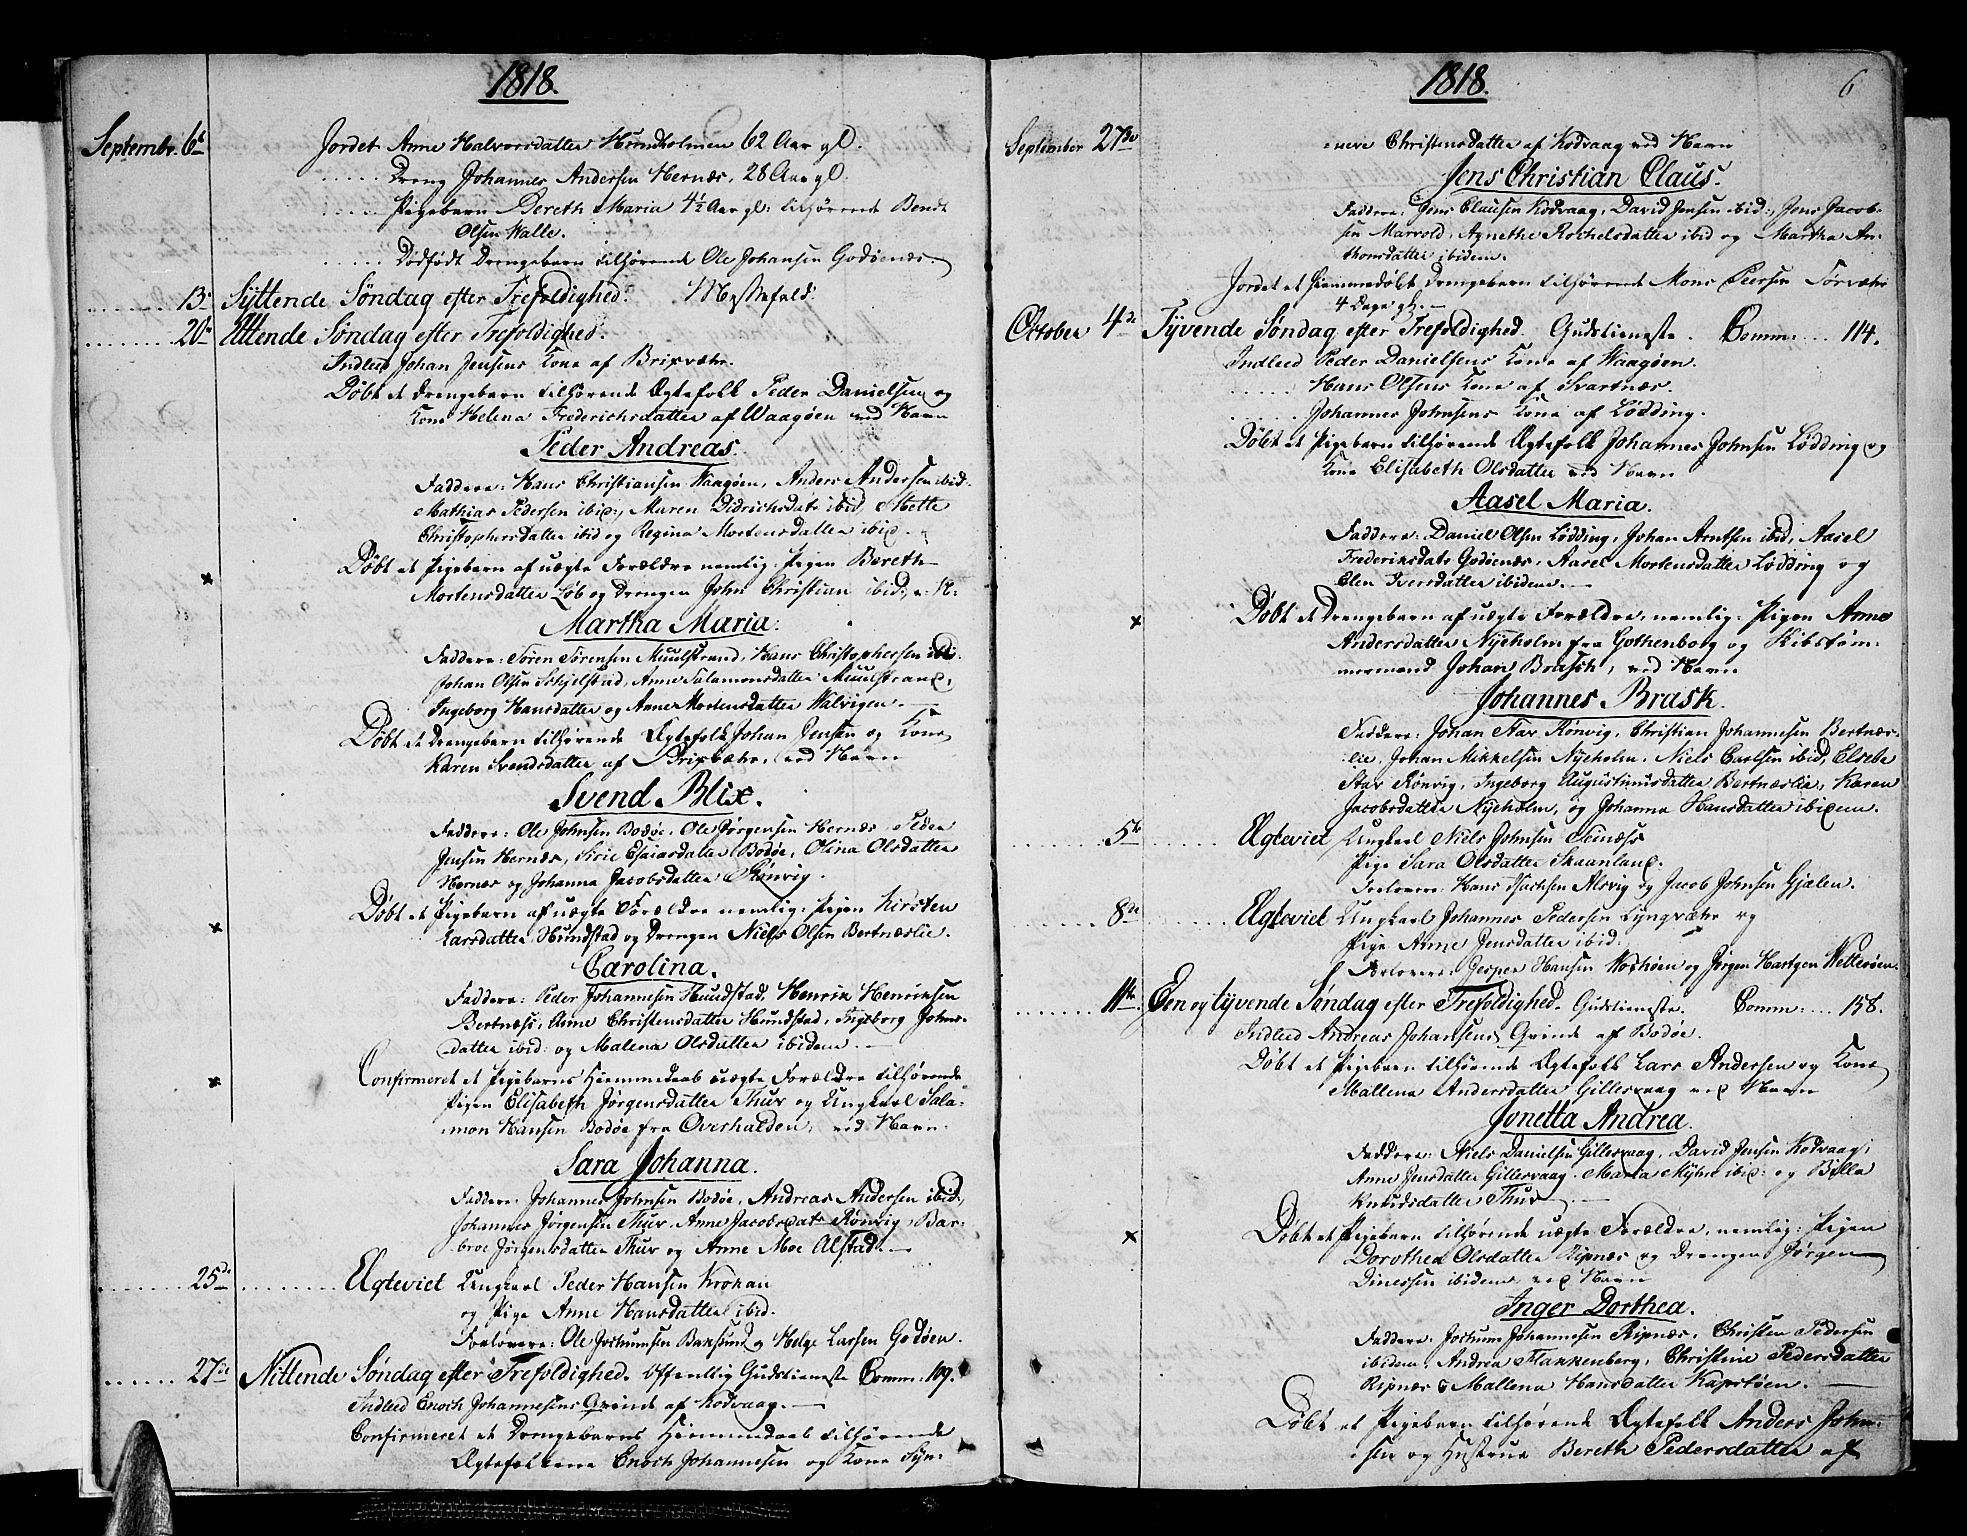 1818.
Septembr. 6te Jordet Anne Halvorsdatter Hundholmen 62 Aar gl.
..... Dreng Johannes Andersen Hernæs, 28 Aar gl.
..... Pigebarn Bereth Maria 4½ Aar gl: tilhørende Bendt
Olsen Valle.
..... Dødfødt Drengebarn tilhørende Ole Johansen Godøenæs.
....... 13de Syttende Søndag efter Trefoldighed. Messefald.
....... 20de Attende Søndag efter Trefoldighed.
Indled Johan Jensens Kone af Brixvær.
Døbt et Drengebarn tilhørende Ægtefolk Peder Danielsen og
Kone Helena Frederichsdatter af Waagøen ved Navn
Peder Andreas.
Faddere: Hans Christiansen Waagøen, Anders Andersen ibid.
Mathias Pedersen ibid, Maren Didrichsdatr ibid, Mette
Christophersdatter ibid og Regina Mortensdatter ibid.
× Døbt et Pigebarn af uægte Forældre nemlig: Pigen Bereth
Mortensdatter Løb og Drengen John Christian ibid: v: N:
Martha Maria.
Faddere: Søren Sørensen Muulstrand, Hans Christophersen ibid.
Johan Olsen Schjelstad, Anne Salamonsdatter Muulstrand,
Ingeborg Hansdatter og Anne Mortensdatter Valvigen.
Døbt et Drengebarn tilhørende Ægtefolk Johan Jensen og Kone
Karen Svendsdatter af Brixvær, ved Navn
Svend Blix.
Faddere: Ole Johnsen Bodøe, Ole Jørgensen Hernæs, Peder
Jensen Hernæs, Sirie Esaiasdatter Bodøe, Olina Olsdatter
Hernæs og Johanna Jacobsdatter Rønvig.
× Døbt et Pigebarn af uægte Forældre nemlig: Pigen Kirsten
Larsdatter Hundstad og Drengen Niels Olsen Bertnæslie.
Carolina.
Faddere: Peder Johannesen Hundstad, Henrik Henriksen
Bertnæss, Anne Christensdatter Hundstad, Ingeborg Johns-
datter ibid: og Malena Olsdatter ibidem.
× Confirmeret et Pigebarns Hiemmedaab uægte Forældre tilhørende
Pigen Elisabeth Jørgensdatter Thuv og Ungkarl Sala-
mon Hansen Bodøe fra Overhalden, ved Navn.
Sara Johanna.
Faddere: Johannes Johnsen Bodøe, Andreas Andersen ibid,
Johannes Jørgensen Thuv, Anne Jacobsdatr Rønvig, Bar-
broe Jørgensdatter Thuv og Anne Moe Alstad.
....... 25de ....... Ægteviet Ungkarl Peder Hansen Krokan
og Pige Anne Hansdatter ibid.
Forlovere: Ole Jochumsen Baksund og Helge Larsen Godøen.
....... 27de Nittende Søndag efter Trefoldighed. Offentlig Gudstieneste Comm: 109.
Indled Enoch Johannesens Qvinde af Kodvaag.
Confirmeret et Drengebarns Hiemmedaab tilhørende
Ægtefolkene Enoch Johannesen og Kone Syn-
1818. 6
September 27de neve Christensdatter af Kodvaag ved Navn
Jens Christian Claus.
Faddere: Jens Clausen Kodvaag, David Jensen ibid:, Jens Jacob-
sen Marvold, Agnethe Rochelsdatter ibid og Martha An-
thonsdatter ibidem.
Jordet et hiemmedøbt Drengebarn tilhørende Mons Peersen Torvær
4 Dage gl.
October 4de Tyvende Søndag efter Trefoldighed. Gudstieneste. Comm: ... 114.
Indled Peder Danielsens Kone af Waagøen.
....... Hans Olsens Kone af Svartnæs.
....... Johannes Johnsens Kone af Lødding.
Døbt et Pigebarn tilhørende Ægtefolk Johannes Johnsen Lødding og
Kone Elisabeth Olsdatter ved Navn
Aasel Maria.
Faddere: Daniel Olsen Lødding, Johan Arntsen ibid, Aasel
Frederiksdatr Godøenæs, Aasel Mortensdatter Lødding og
Elen Iversdatter ibidem.
× Døbt et Drengebarn af uægte Forældre, nemlig: Pigen Anne
Andersdatter Nyeholm fra Gothenborg og Skibstøm-
mermand Johan Brasck, ved Navn
Johannes Brask.
Faddere: Johan Star Rønvig, Christian Johannesen Bertnæs-
lie, Johan Mikkelsen Nyeholm, Niels Carlsen ibid, Elsebe
Star Rønvig, Ingeborg Augustinusdatter Bertnæslie, Karen
Jacobsdatter Nyeholm, og Johanna Hansdatter ibidem.
....... 5te ....... Ægteviet Ungkarl Niels Johnsen Seinæss
Pige Sara Olsdatter Skaanland.
Forlovere: Hans Isachsen Alsvig og Jacob Johnsen Gjælen.
....... 8de ....... Ægteviet Ungkarl Johannes Pedersen Lyngvær og
Pige Anne Jensdatter ibid.
Forlovere: Jesper Hansen Noshøen og Jørgen Hartgen Netterøen.
....... 11te Een og tyvende Søndag efter Trefoldighed. Gudstieneste. Comm: ... 158.
Indled Andreas Johansens Qvinde af Bodøe.
Døbt et Pigebarn tilhørende Ægtefolk Lars Andersen og Kone
Mallena Andersdatter Gillesvaag ved Navn
Jonetta Andrea.
Faddere: Niels Danielsen Gillesvaag, David Jensen Kodvaag,
Anne Jensdatter Gillesvaag, Maria ibid: og Bille
Knudsdatter Thuv.
× Døbt et Pigebarn tilhørende uægte Forældre, nemlig: Pigen
Dorothea Olsdatter Ripnæs og Drengen Jørgen
Dinessen ibidem ved Navn
Inger Dorthea.
Faddere: Jochum Johannesen Ripnæs, Christen Pedersen
ibidem, Andrea Flakkenberg, Christine Pedersdatter
Ripnæs & Mallena Hansdatter Kapstøen.
Døbt et Pigebarn tilhørende Ægtefolk Anders John-
sen og Hustrue Bereth Pedersdatter af